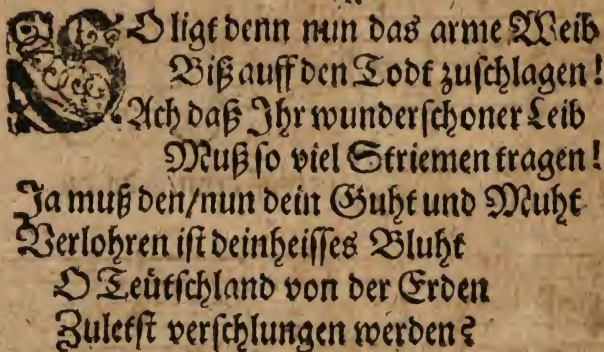 SO ligt denn nun das arme Weib
Biß auff den Todt zuschlagen!
Ach daß Ihr wunderschoner Leib
Muß so viel Striemen tragen!
Ja muß den/nun dein Guht und Muht
Verlohren ist deinheisses Bluht
O Teütschland von der Erden
Zuletst verschlungen werden?